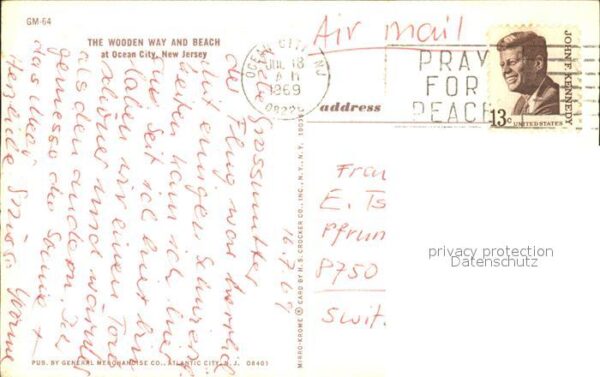 GM-64
THE WOODEN WAY AND BEACH
at Ocean City, New Jersey
Air mail
OCEAN CITY, NJ
JUL 18
1969
08226
PRAY
FOR
PEACE
JOHN F. KENNEDY
13c
UNITED STATES
address
16.7.69
Liebe Grossmutter
der Flug war herrlich
Mit einigen
kann ich hier
seit ich hier bin
haben wir einen Tag
schöner und wärmer
als den andern. Ich
geniesse die Sonne +
das Meer
Herzliche Grüsse
MIRRO-KROME ® CARD BY H. S. CROCKER CO., INC., N.Y., N.Y.
Frau
E. Ts
Pfrun
8750
Swit.
privacy protection
Datenschutz
PUB. BY GENERAL MERCHANDISE CO., ATLANTIC CITY, N. J. 08401